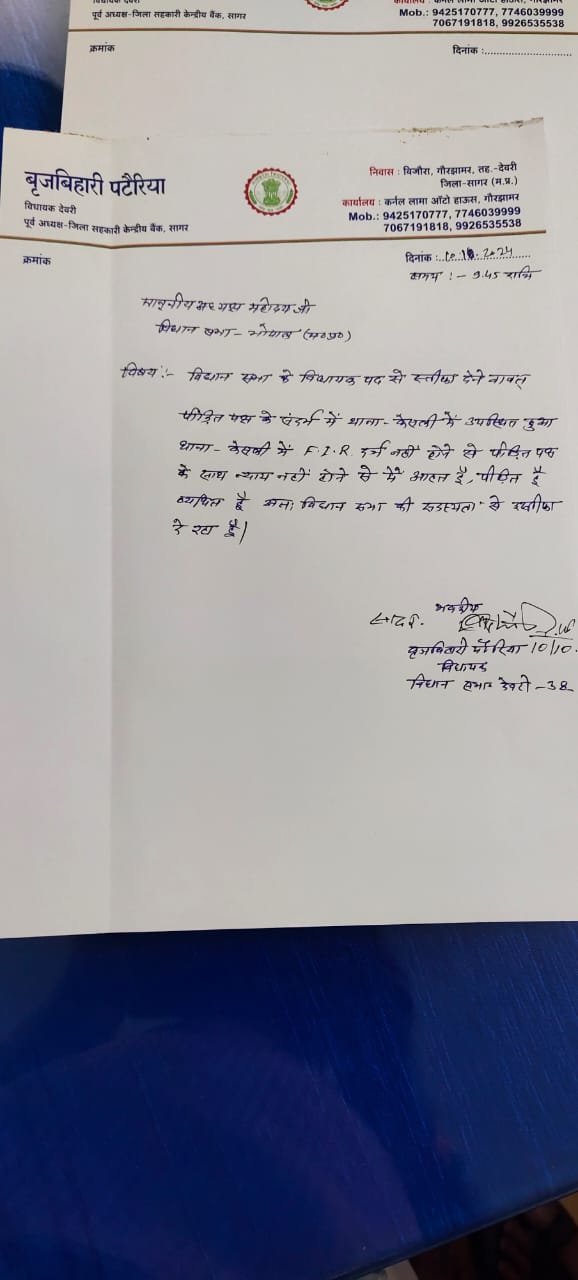 विधायक देवरी
पूर्व अध्यक्ष-जिला सहकारी केन्द्रीय बैंक, सागर
कार्यालय : कर्नल लामा ऑटो हाऊस, गौरझामर
Mob.: 9425170777, 7746039999
7067191818, 9926535538
क्रमांक
दिनांक :
बृजबिहारी पटैरिया
विधायक देवरी
पूर्व अध्यक्ष-जिला सहकारी केन्द्रीय बैंक, सागर
निवास : बिजौरा, गौरझामर, तह.-देवरी
जिला-सागर (म.प्र.)
कार्यालय : कर्नल लामा ऑटो हाऊस, गौरझामर
Mob.: 9425170777, 7746039999
7067191818, 9926535538
क्रमांक
दिनांक : 10.10.2024
समय :- 9.45 रात्रि
माननीय अध्यक्ष महोदय जी
विधान सभा - भोपाल (म०प्र०)
विषय :- विधान सभा के विधायक पद से स्तीफा देने वावत्
पीड़ित पक्ष के संदर्भ में थाना - केसली में उपस्थित हुआ
थाना - केसली में F.I.R. दर्ज नहीं होने से पीड़ित पक्ष
के साथ न्याय नहीं होने से मैं आहत हूँ, पीड़ित हूँ
व्यथित हूँ अतः विधान सभा की सदस्यता से स्तीफा
दे रहा हूँ।
सादर.
भवदीय
बृजबिहारी पटैरिया 10/10.
विधायक
विधान सभा देवरी - 38